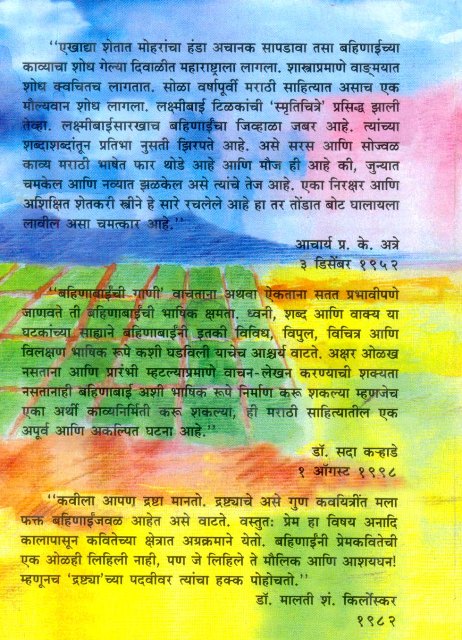 “एखाद्या शेतात मोहरांचा हंडा अचानक सापडावा तसा बहिणाईच्या
काव्याचा शोध गेल्या दिवाळीत महाराष्ट्राला लागला. शास्त्राप्रमाणे वाङ्‌मयात
शोध क्वचितच लागतात. सोळा वर्षापूर्वी मराठी साहित्यात असाच एक
मौल्यवान शोध लागला. लक्ष्मीबाई टिळकांची ‘स्मृतिचित्रे’ प्रसिद्ध झाली
तेव्हा. लक्ष्मीबाईसारखाच बहिणाईंचा जिव्हाळा जबर आहे. त्यांच्या
शब्दाशब्दांतून प्रतिभा नुसती झिरपते आहे. असे सरस आणि सोज्वळ
काव्य मराठी भाषेत फार थोडे आहे आणि मौज ही आहे की, जुन्यात
चमकेल आणि नव्यात झळकेल असे त्यांचे तेज आहे. एका निरक्षर आणि
अशिक्षित शेतकरी स्त्रीने हे सारे रचलेले आहे हा तर तोंडात बोट घालायला
लावील असा चमत्कार आहे.”
आचार्य प्र. के. अत्रे
३ डिसेंबर १९५२
“बहिणाबाईंची गाणी’ वाचताना अथवा ऐकताना सतत प्रभावीपणे
जाणवते ती बहिणाबाईंची भाषिक क्षमता. ध्वनी, शब्द आणि वाक्य या
घटकांच्या साह्याने बहिणाबाईंनी इतकी विविध, विपुल, विचित्र आणि
विलक्षण भाषिक रूपे कशी घडविली याचेच आश्चर्य वाटते. अक्षर ओळख
नसताना आणि प्रारंभी म्हटल्याप्रमाणे वाचन-लेखन करण्याची शक्यता
नसतानाही बहिणाबाई अशी भाषिक रूपे निर्माण करू शकल्या म्हणजेच
एका अर्थी काव्यनिर्मिती करू शकल्या, ही मराठी साहित्यातील एक
अपूर्व आणि अकल्पित घटना आहे.”
डॉ. सदा कऱ्हाडे
१ ऑगस्ट १९९८
“कवीला आपण द्रष्टा मानतो. द्रष्ट्याचे असे गुण कवयित्रींत मला
फक्त बहिणाईंजवळ आहेत असे वाटते. वस्तुत: प्रेम हा विषय अनादि
कालापासून कवितेच्या क्षेत्रात अग्रक्रमाने येतो. बहिणाईंनी प्रेमकवितेची
एक ओळही लिहिली नाही, पण जे लिहिले ते मौलिक आणि आशयघन!
म्हणूनच ‘द्रष्ट्या’च्या पदवीवर त्यांचा हक्क पोहोचतो.”
डॉ. मालती शं. किर्लोस्कर
१९८२